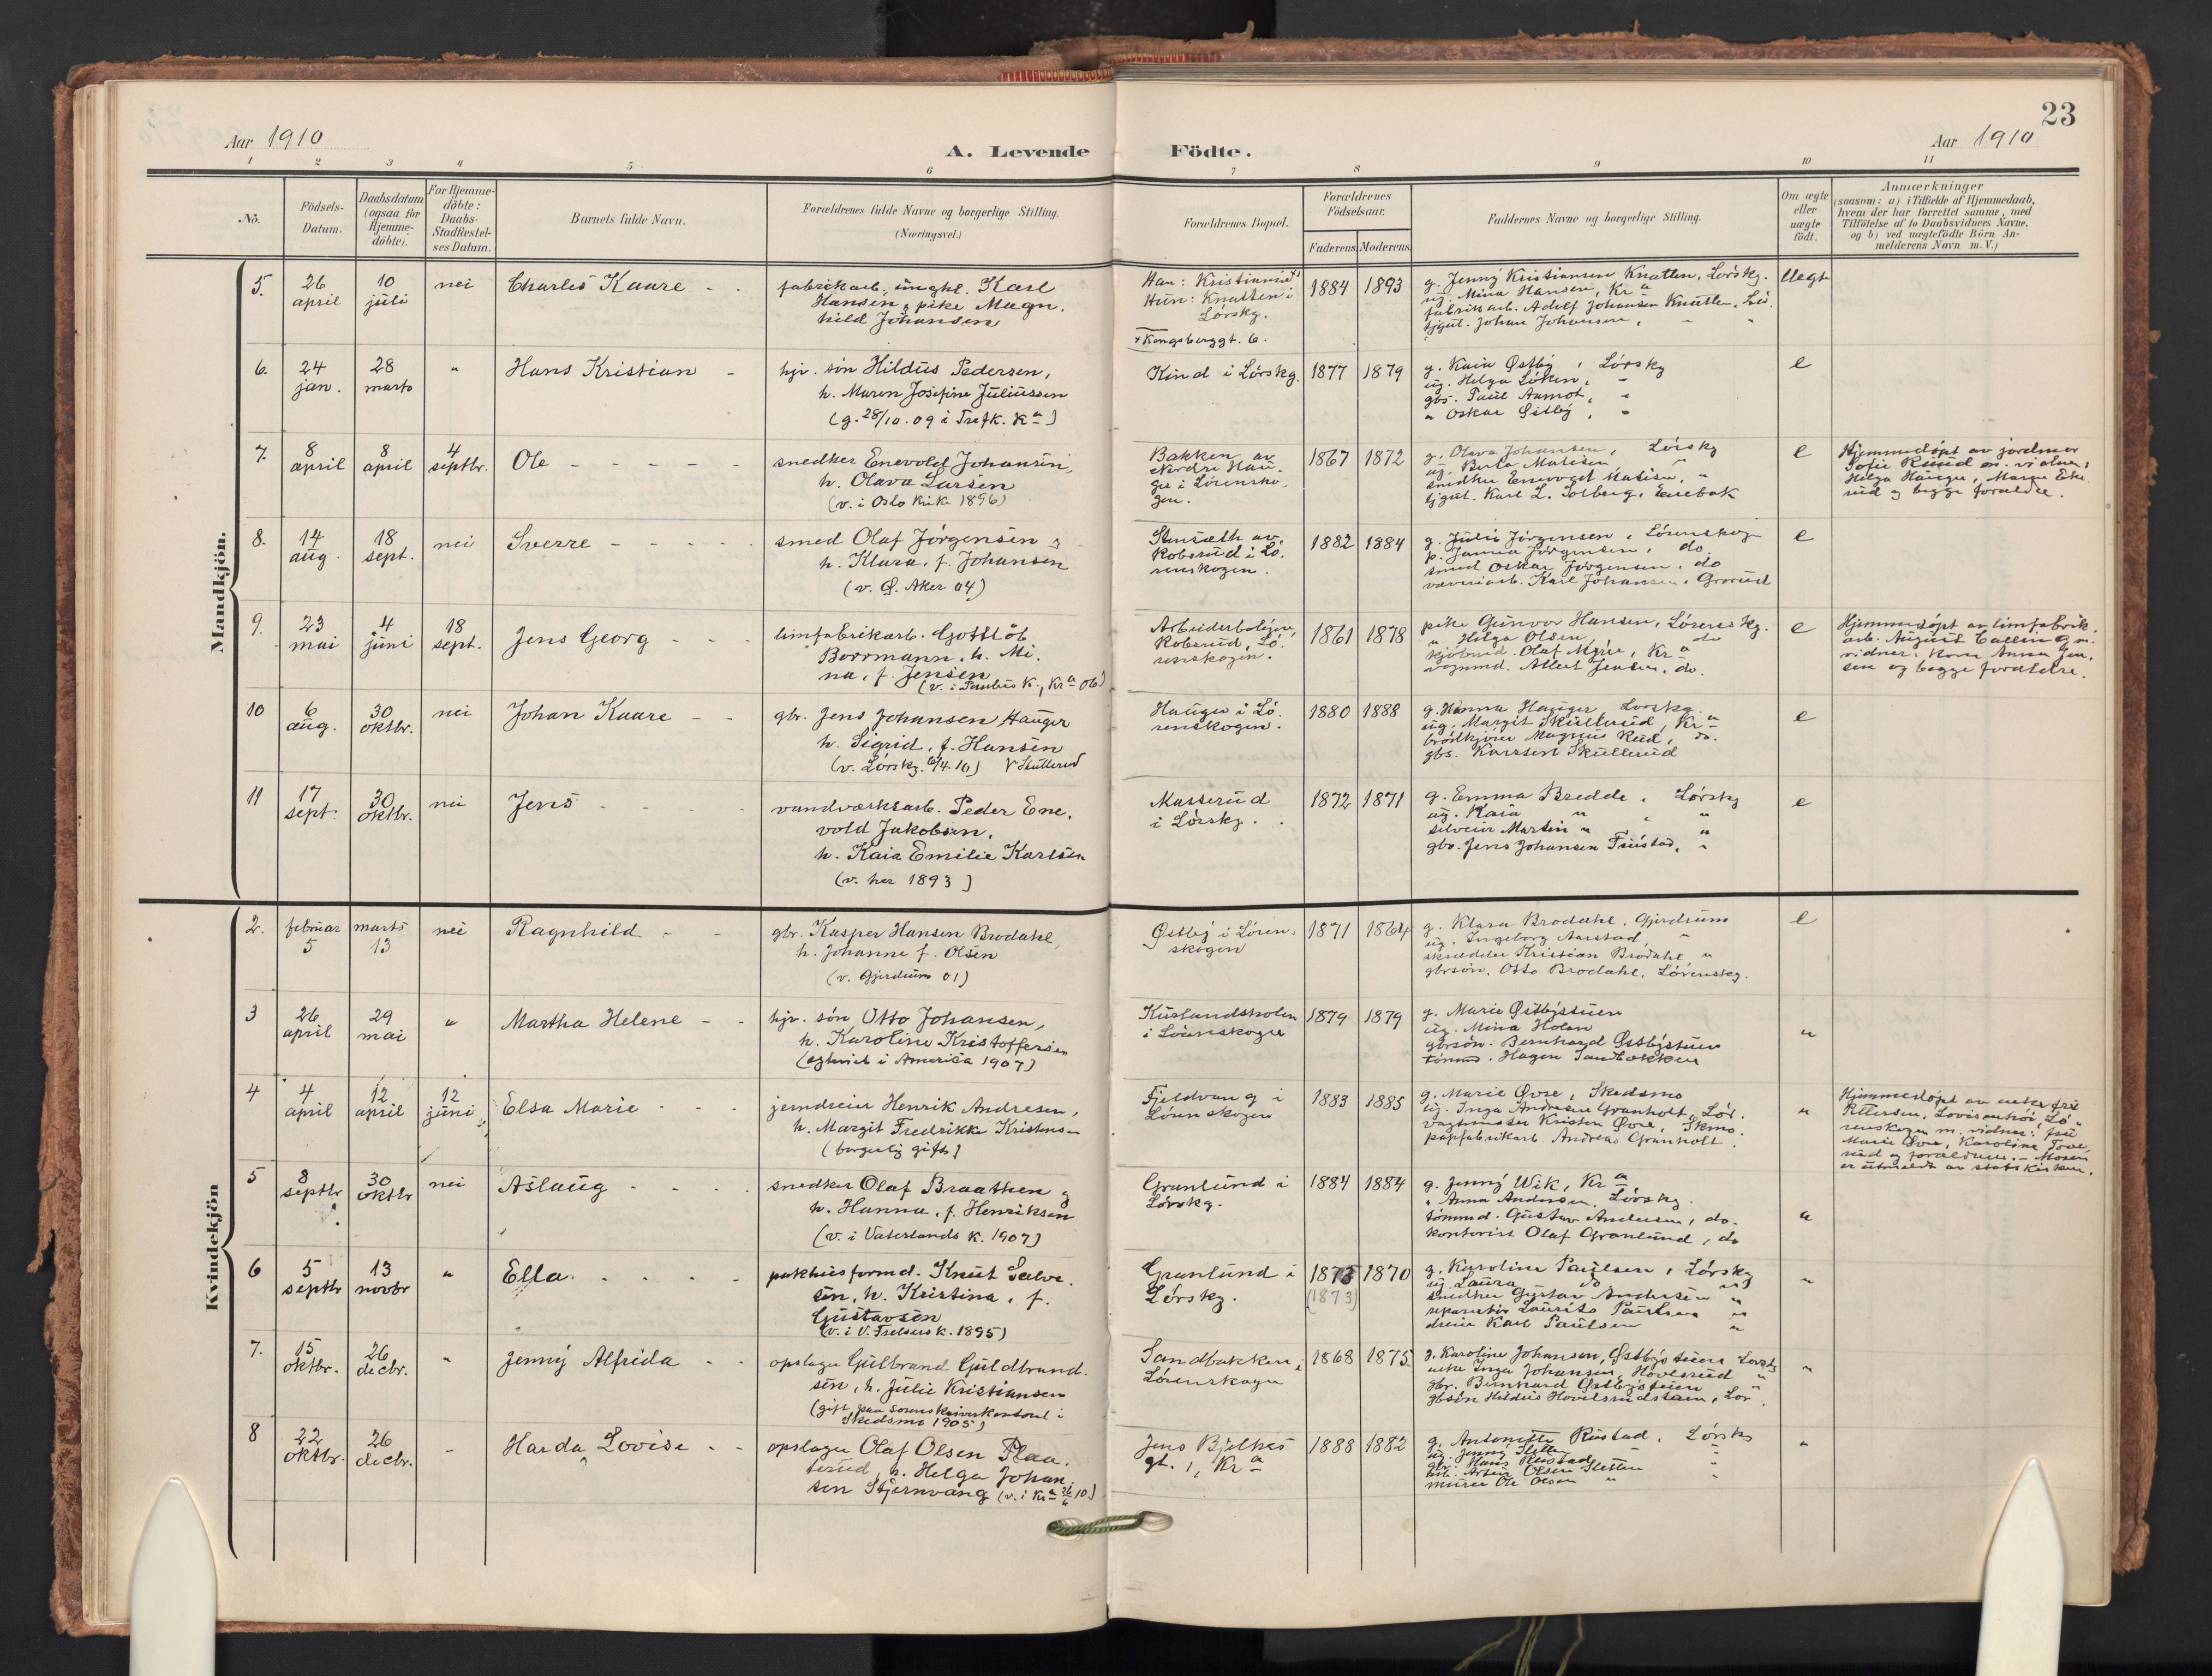 23
Aar 1910
A. Levende Födte.
Aar 1910
1 2 3 4 5 6 7 8 9 10 11
No. Födsels-Datum. Daabsdatum (ogsaa for Hjemme-döbte). For Hjemme-döbte: Daabs-Stadfæstel-ses Datum. Barnets fulde Navn. Forældrenes fulde Navne og borgerlige Stilling. (Næringsvei.) Forældrenes Bopæl. Forældrenes Födselsaar. Faderens. Moderens. Faddernes Navne og borgerlige Stilling. Om ægte eller uægte födt. Anmærkninger (saasom: a) i Tilfælde af Hjemmedaab, hvem der har forrettet samme, med Tilföielse af to Daabsvidners Navne. og b) ved uægtefödte Börn An-melderens Navn m. V.)
Mandkjön.
5. 26 april 10 juli nei Charles Kaare
fabrikarb. ungkl. Karl
Hansen, pike Magn.
hild Johansen
Han: Kristiania
Hun: Knatten i
Lørskg.
+ Kongsberggt. 6.
1884 1893
g. Jenny Kristiansen Knatten, Lørskg.
ug. Mina Hansen, Kra
fabrikarb. Adolf Johansen Knatten, Lø.
tjgut. Johan Johansen, " "
Uegt
6. 24 jan. 28 marts " Hans Kristian
hjv. søn Hildus Pedersen,
h. Maren Josefine Juliussen
(g. 28/10.09 i Trefk. Kra)
Kind i Lørskg. 1877 1879
g. Kaia Østby, Lørskg
ug. Helga Løken, "
gbs. Paul Aamot, "
" Oskar Østby, "
e
7. 8 april 8 april 4 septbr. Ole
snedker Enevold Johansen,
h. Olava Larsen
(v. i Oslo kirke 1896)
Bakken av
nordre Hau-
ger i Lørensko
gen.
1867 1872
g. Olava Johansen, Lørskg
ug. Berta Matisen "
snedker Enevold Matisen, "
tjgut. Karl L. Solberg, Enebak
e
Hjemmedøpt av jordmor
Sofie Ruud m. vidner:
Helga Hauger, Maren Eke
rud og begge forældre.
8. 14 aug. 18 sept. nei Sverre
smed Olaf Jørgensen og
h. Klara, f. Johansen
(v. Ø. Aker 04)
Robsrud i Lø.
renskogen.
1882 1884
g. Julie Jørgensen, Lørenskog
p. Janna Jørgensen, do.
smed Oskar Jørgensen, do
væveriarb. Karl Johansen, Grorud
e
9. 23 mai 4 juni 18 sept. Jens Georg
limfabrikarb. Gottlob
Borrmann, h. Mi.
na, f. Jensen
(v. i Paulus K., Kra 06)
Arbeiderboligen,
Robsrud, Lø.
renskogen.
1861 1878
pike Gunvor Hansen, Lørenskg.
" Helga Olsen, do
Olaf Myre, Kra
vognmd. Albert Jensen, do.
e
Hjemmedøpt av limfabrik.
arb. August Callin m.
vidner: Kone Anna Jen.
sen og begge forældre.
10 6 aug. 30 oktbr. nei Johan Kaare
gbr. Jens Johansen Hauger
h. Sigrid, f. Hansen
(v. Lørskg. 6/4 10) V Skullerud
Hauger i Lø.
renskogen.
1880 1888
g. Hanna Hauger, Lørskg.
ug. Margit Skullerud, Kra
brødkjører Magnus Rud, do.
gbs. Karsten Skullerud
e
11 17 sept. 30 oktbr. nei Jens
vandværksarb. Peder Ene.
vold Jakobsen,
h. Kaia Emilie Karlsen
(v. her 1893)
Masserud
i Lørskg.
1872 1871
g. Emma Bredde, Lørskg
ug. Kaia " "
Martin " "
gbr. Jens Johansen Finstad, "
e
Kvindekjön
2. februar 5 marts 13 nei Ragnhild
gbr. Kasper Hansen Brodahl,
h. Johanne f. Olsen
(v. Gjerdrum 01)
Østby i Løren.
skogen
1871 1864
g. Klara Brodahl, Gjerdrum
ug. Ingeborg Aarstad, "
skrædder Kristian Brodahl, "
gbrsøn. Otto Brodahl, Lørenskg.
e
3 26 april 29 mai " Martha Helene
hjv. søn Otto Johansen,
h. Karoline Kristoffersen
(egtevied i America 1907)
Kurlandsholen
i Lørenskogen
1879 1879
g. Marie Østbystuen
ug. Mina Holen
gbrsøn. Bernhard Østbystuen
tømmd. Hagen Sandbakken
"
4 4 april 12 april 12 juni Elsa Marie
jerndreier Henrik Andresen,
h. Margit Fredrikke Kristensen
(borgerlig gifte)
Fjeldvang i
Lørenskogen
1883 1885
g. Marie Øvre, Skedsmo
ug. Inga Andresen Granholt, Lør.
vagtmester Kristen Øvre, Skmo.
papfabrikarb. Andreas Granholt.
"
Hjemmedøpt av enkefru
Petersen, Lovisenhøi, Lø
renskogen m. vidner: fru
Marie Øvre, Karoline Tove
rud og forældrene. - Moren
er utmeldt av statskirken.
5 8 septbr 30 oktbr nei Aslaug
snedker Olaf Braathen og
h. Hanna, f. Henriksen
(v. i Vaterlands k. 1907)
Granlund i
Lørskg.
1884 1884
g. Jenny Wik, Kra
" Anna Andersen, Lørskg.
tømmd. Gustav Andersen, do.
kontorist Olaf Granlund, do
"
6 5 septbr 13 novbr " Ella
pakhusformd. Knut Salve.
sen, h. Kristina, f.
Gustavsen
(v. i V. Frelsers k. 1895)
Granlund i
Lørskg.
1875 (1873) 1870
g. Karoline Paulsen, Lørskg
ug. Laura do. "
snedker Gustav Andersen "
reparatør Laurits Paulsen "
dreier Karl Paulsen "
"
7. 15 oktbr. 26 decbr. " Jenny Alfrida
opslager Gulbrand Guldbrand.
sen, h. Julie Kristiansen
(gift paa Sorenskriverkontoret i
Skedsmo 1905)
Sandbakken i
Lørenskogen
1868 1875
g. Karoline Johansen, Østbystuen Lørskg
enke Inga Johansen, Hovelsrud "
gbr. Bernhard Østbystuen "
gbsøn Hildus Hovelsrudstuen, Lør.
"
8 22 oktbr. 26 decbr. - Harda Lovise
opslager Olaf Olsen Plaa.
terud, h. Helga Johan.
sen Stjernvang (v. i Kra 10)
Jens Bjelkes
gt. 1, Kra
1888 1882
g. Antonette Rustad, Lørskg
ug. Jenny Sletten "
gbr. Hans Rustad "
Artur Olsen Sletten "
murer Ole Olsen "
"